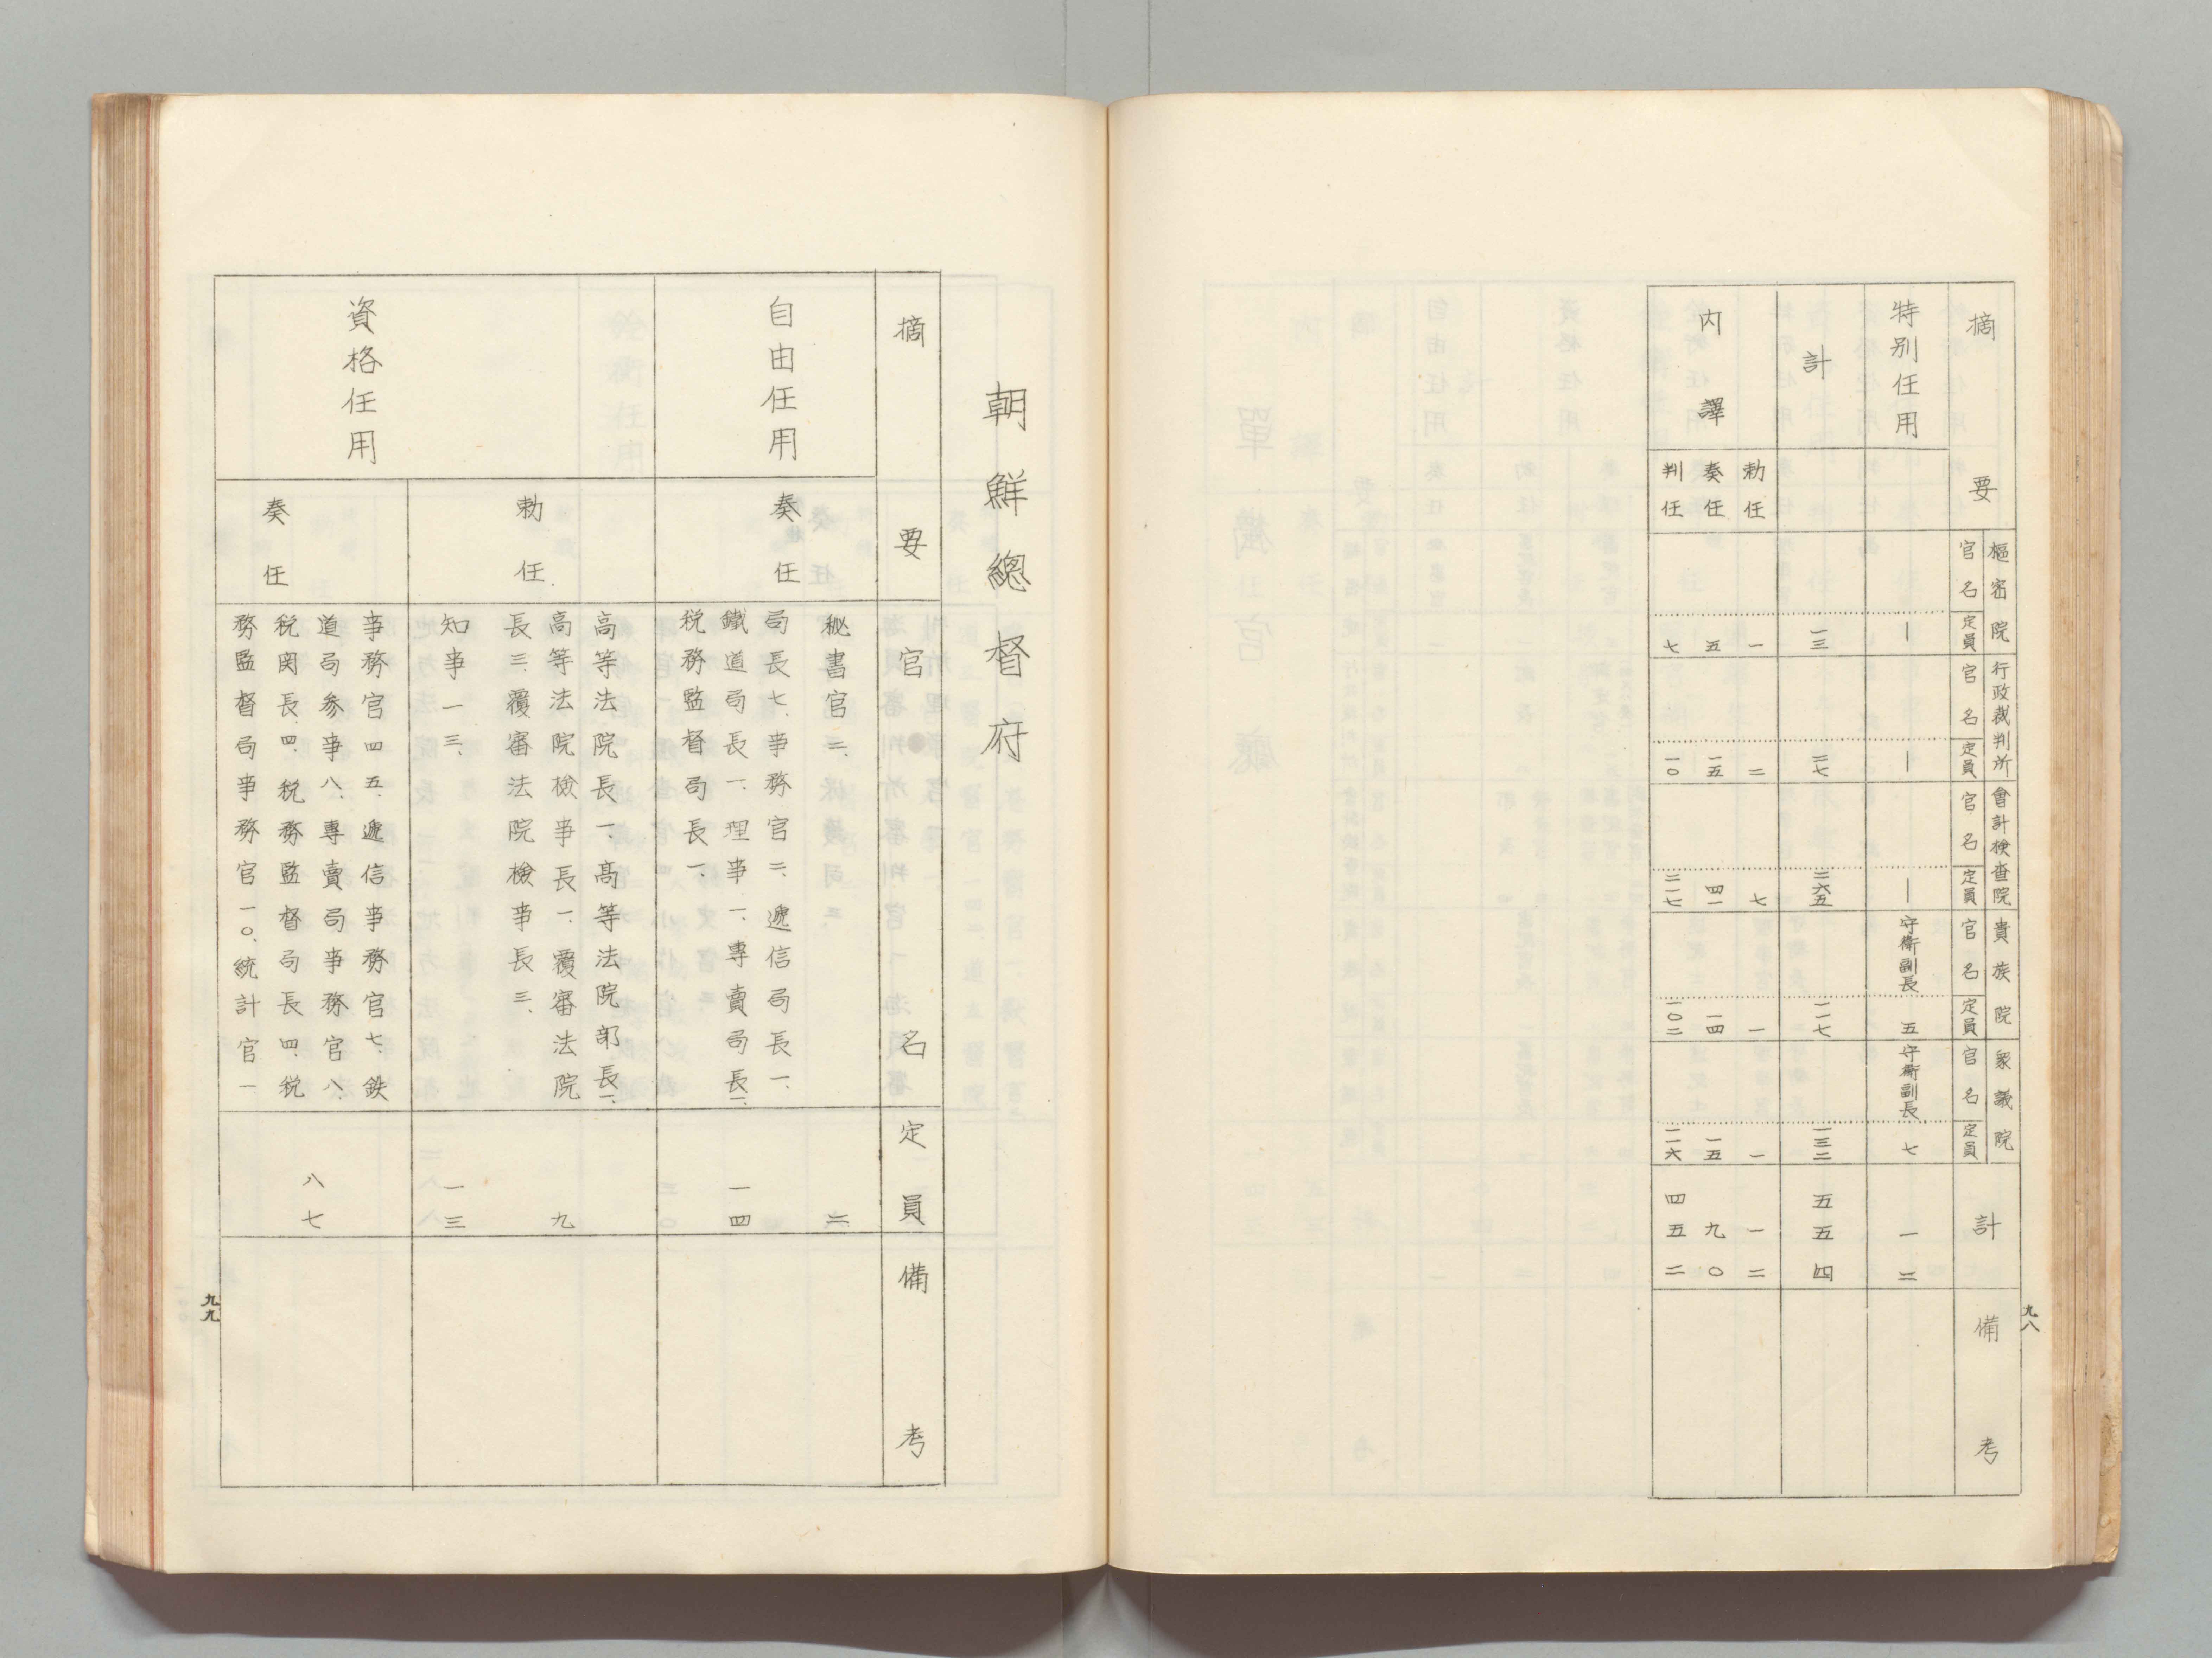 摘要
樞密院
官名
定員
行政裁判所
官名
定員
會計檢查院
官名
定員
貴族院
官名
定員
衆議院
官名
定員
計
備考
特別任用
｜
｜
｜
守衛副長
五
守衛副長
七
一二
計
一三
二七
二六五
一一七
一三二
五五四
內譯
勅任
一
二
七
一
一
一二
奏任
五
一五
四一
一四
一五
九〇
判任
七
一〇
二一七
一〇二
一一六
四五二
九八
朝鮮總督府
摘要
官名
定員
備考
自由任用
奏任
秘書官二、
二
局長七、事務官二、遞信局長一、
鐵道局長一、理事一、專賣局長一、
稅務監督局長一、
一四
資格任用
勅任
高等法院長一、高等法院部長一、
高等法院檢事長一、覆審法院
長三、覆審法院檢事長三、
九
知事一三、
一三
奏任
事務官四五、遞信事務官七、鉄
道局参事八、專賣局事務官八、
稅関長四、稅務監督局長四、稅
務監督局事務官一〇、統計官一
八七
九九